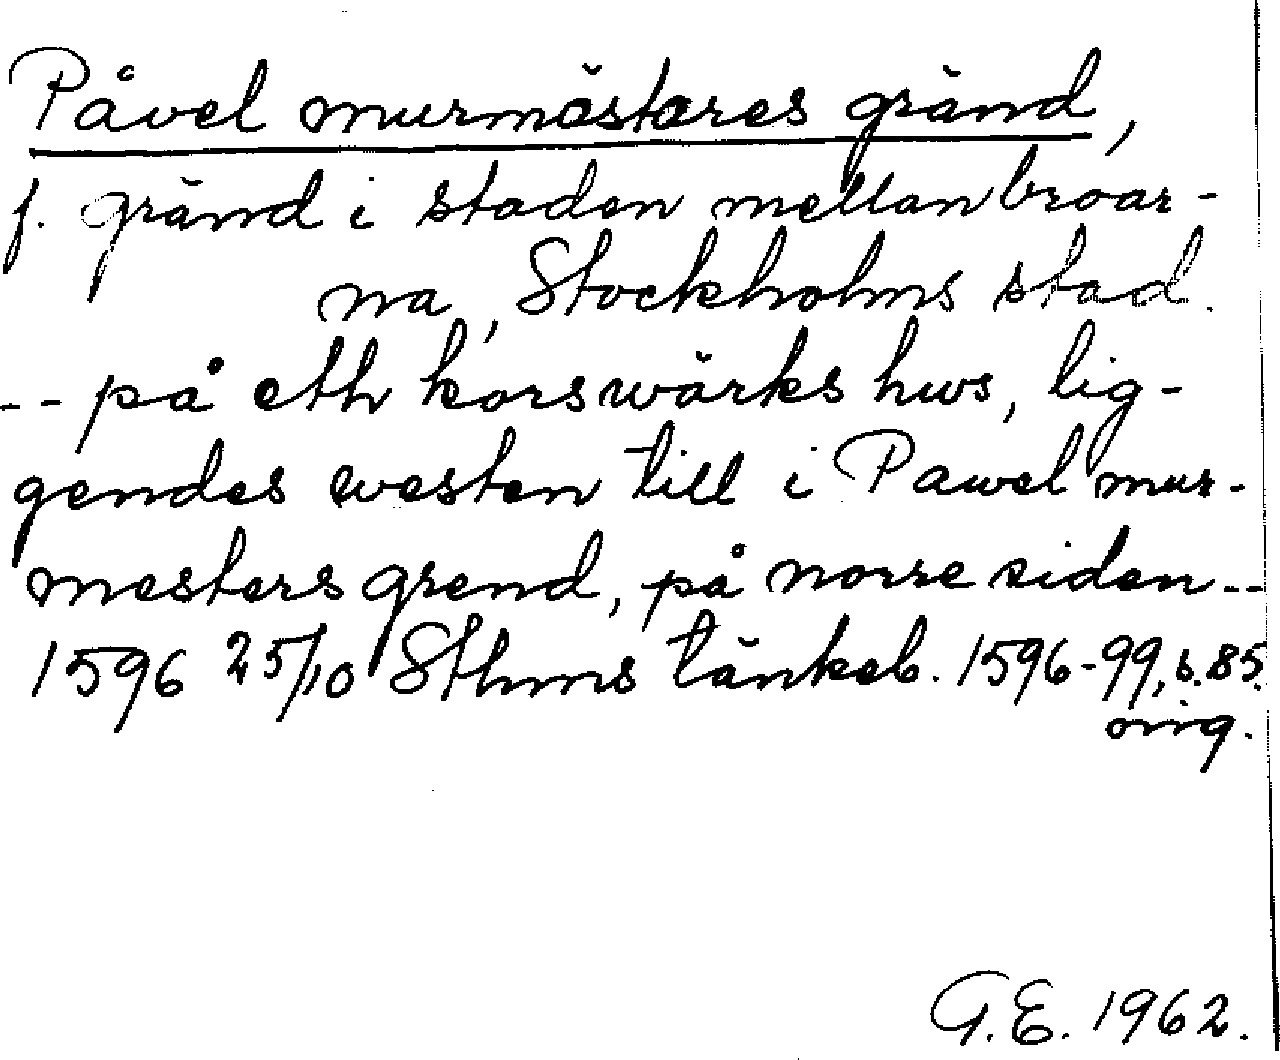 Påvel murmästares gränd,
f. gränd i staden mellan broar-
na, Stockholms stad.
-- på eth korswärks hws, lig-
gendes westen till i Pawel mur-
mesters grend, på norre siden--
1596 25/10 Sthms tänkeb. 1596-99, s. 85.
orig.
G.E. 1962.